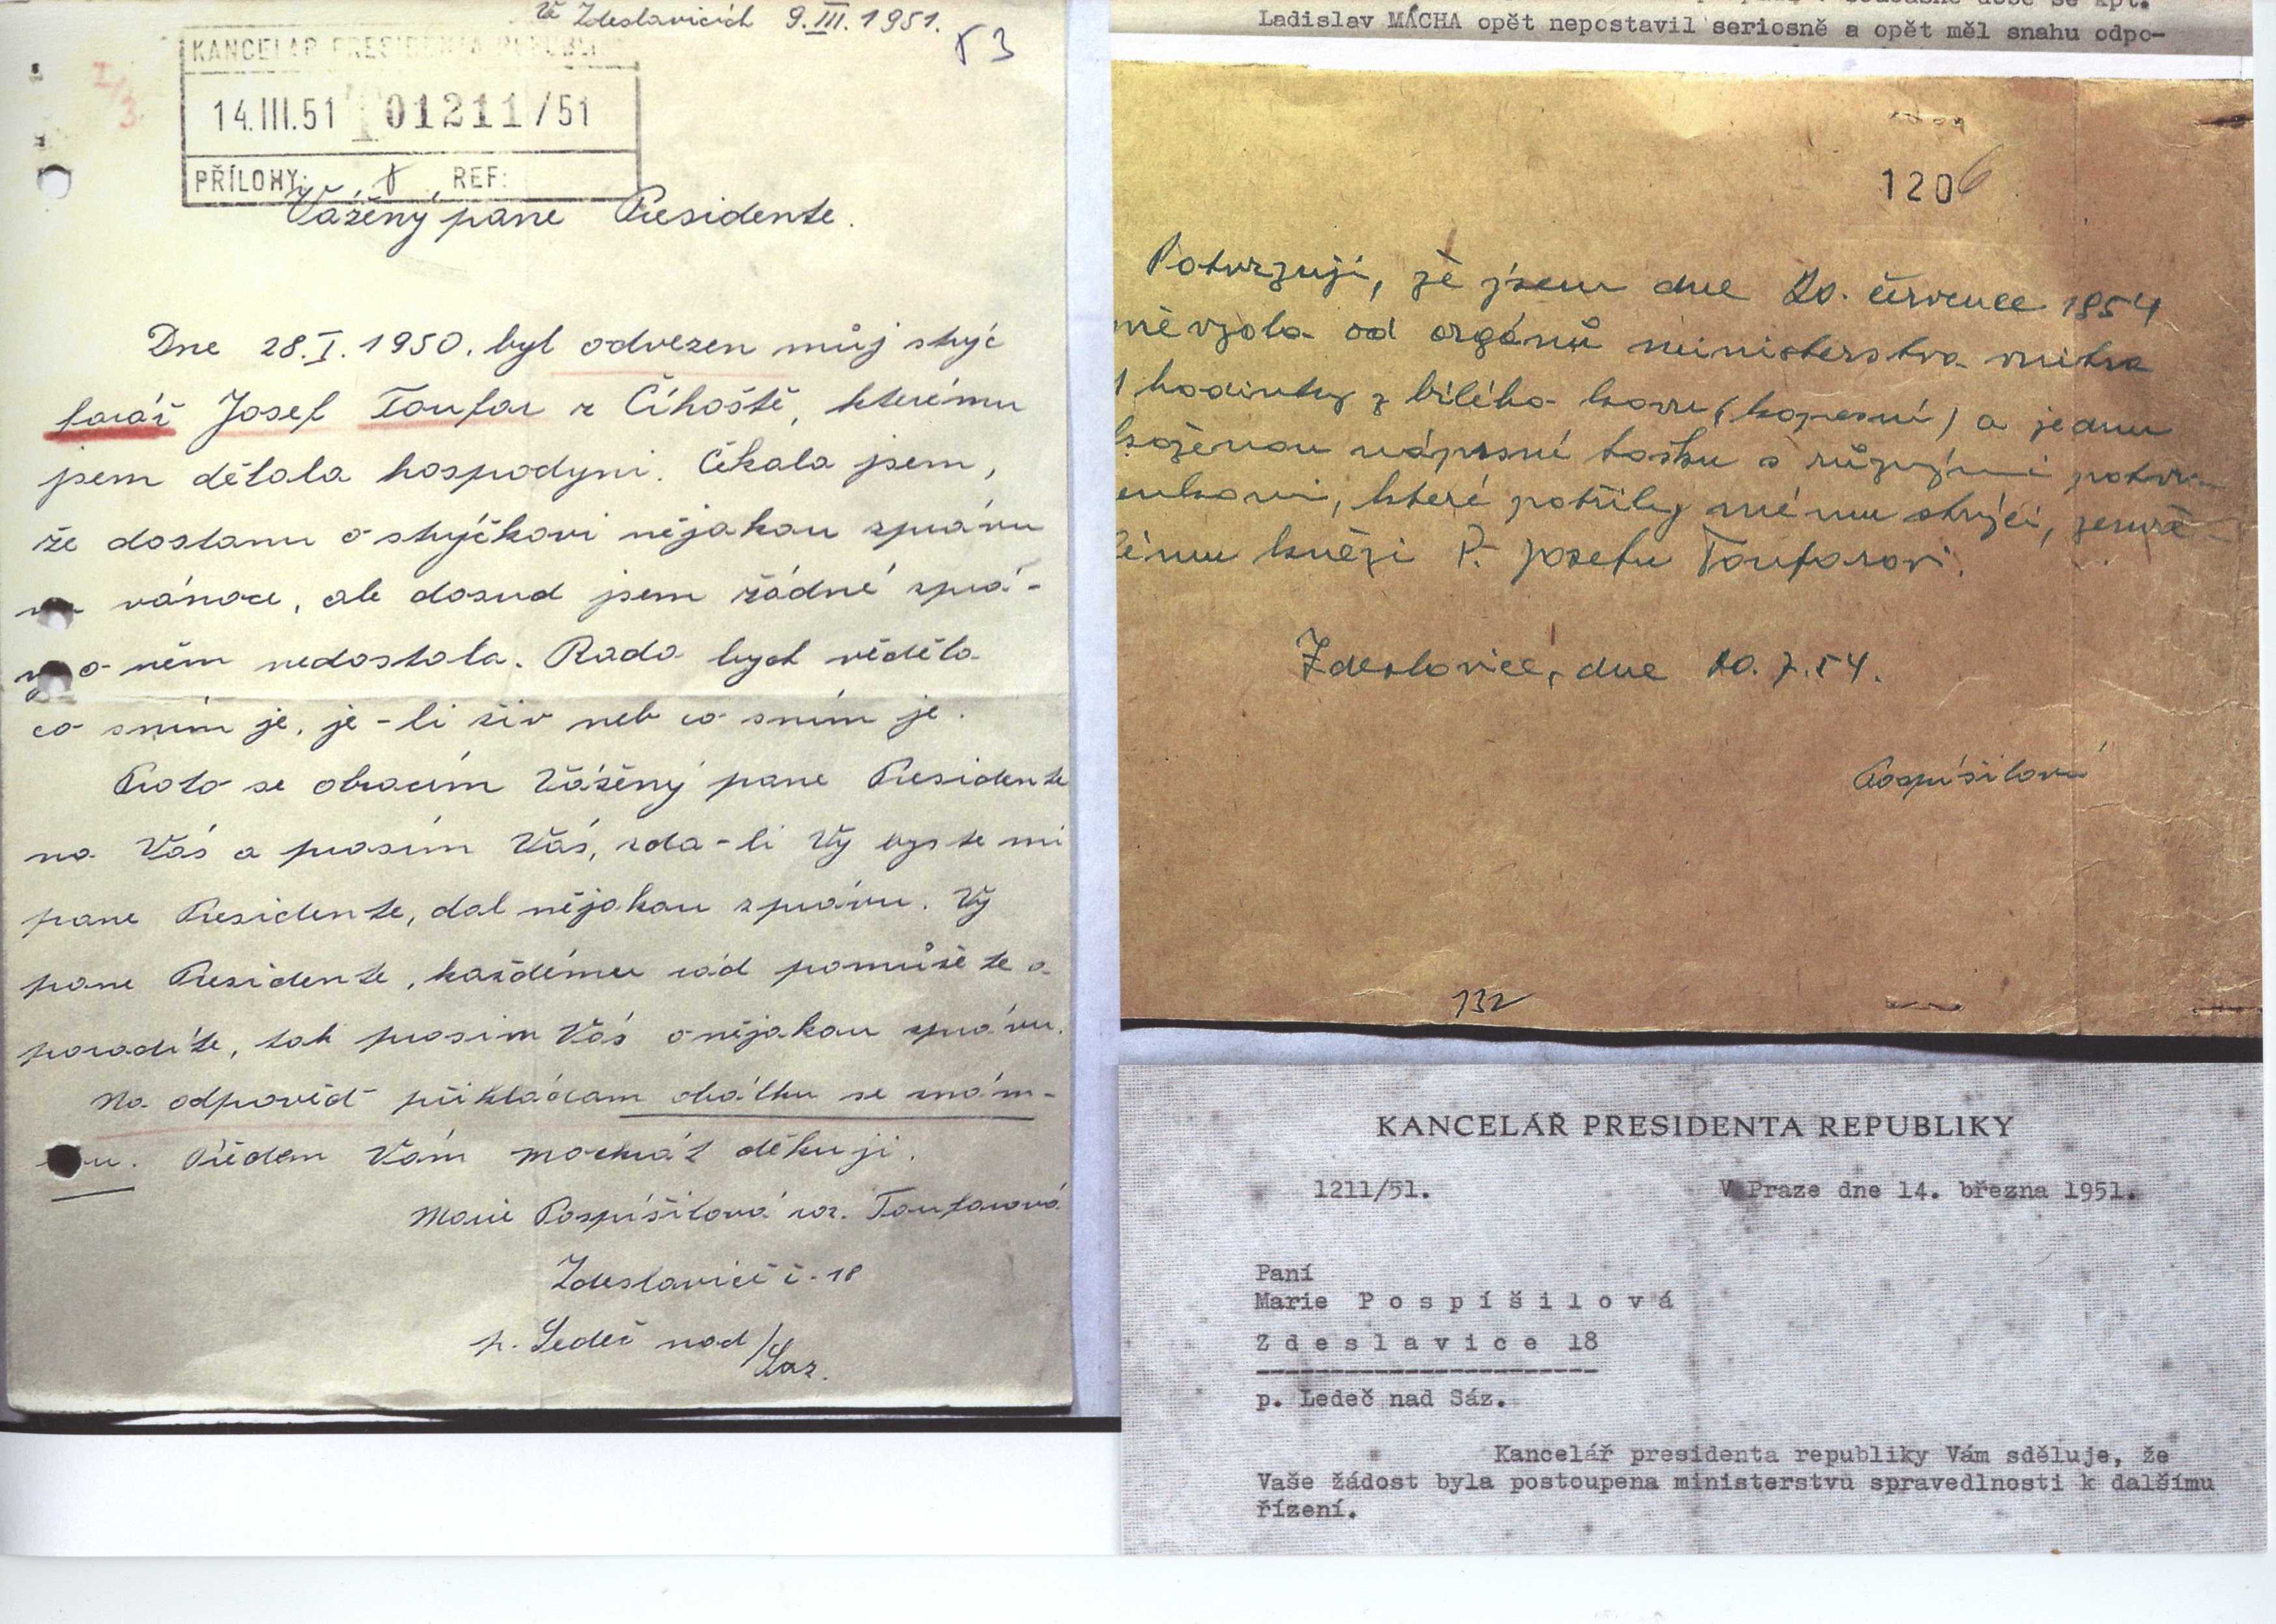 Ve Zdeslavicích 9.III.1951.
53
KANCELÁŘ PRESIDENTA REPUBLIKY
14.III.51 01211/51
PŘÍLOHY: REF:
Vážený pane Presidente.
Dne 28.I.1950. byl odvezen můj strýc
farář Josef Toufar z Číhoště, kterému
jsem dělala hospodyni. Čekala jsem,
že dostanu o strýčkovi nějakou zprávu
na vánoce, ale dosud jsem žádné zprá-
vy o něm nedostala. Ráda bych věděla
co sním je, je-li živ neb co sním je.
Proto se obracím Vážený pane Presidente
na Vás a prosím Vás, zda-li Vy byste mi
pane Presidente, dal nějakou zprávu. Vy
pane Presidente, každému rád pomůžete a
poradíte, tak prosím Vás o nějakou zprávu.
Na odpověď přikládám obálku se znám-
kou. Předem Vám mockrát děkuji.
Marie Pospíšilová roz. Toufarová
Zdeslavice č. 18
p. Ledeč nad/Sáz.
Ladislav MÁCHA opět nepostavil seriosně a opět měl snahu odpo-
120
Potvrzuji, že jsem dne 20. července 1954
převzala od orgánů ministerstva vnitra
1 hodinky z bílého kovu (kapesní) a jednu
koženou náprsní tašku s různými potvr-
zenkami, které patřily mému strýci, zemře-
lému knězi P. Josefu Toufarovi.
Zdeslavice, dne 20.7.54.
Pospíšilová
132
KANCELÁŘ PRESIDENTA REPUBLIKY
1211/51. V Praze dne 14. března 1951.
Paní
Marie Pospíšilová
Zdeslavice 18
p. Ledeč nad Sáz.
Kancelář presidenta republiky Vám sděluje, že
Vaše žádost byla postoupena ministerstvu spravedlnosti k dalšímu
řízení.